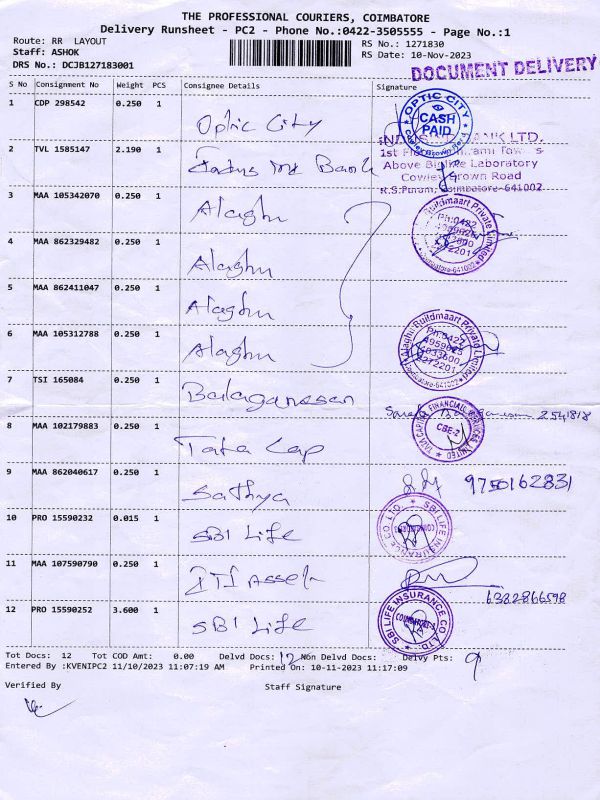 THE PROFESSIONAL COURIERS, COIMBATORE
Delivery Runsheet - PC2 - Phone No.:0422-3505555 - Page No.:1
Route: RR LAYOUT
RS No.: 1271830
Staff: ASHOK
RS Date: 10-Nov-2023
DRS No.: DCJB127183001
DOCUMENT DELIVERY
S No Consignment No Weight PCS Consignee Details Signature
1 CDP 298542 0.250 1 Optic City
OPTIC CITY CASH PAID Cowley Brown Road
2 TVL 1585147 2.190 1 Indus Ind Bank
BANK LTD.
1st
Above Laboratory
Cowley Brown Road
R.S.Puram, Coimbatore-641002
3 MAA 105342070 0.250 1 Alaghu
Buildmaart Private Limited
Ph:0422
4 MAA 862329482 0.250 1 Alaghu
5 MAA 862411047 0.250 1 Alaghu
6 MAA 105312788 0.250 1 Alaghu
Alaghu Buildmaart Private Limited
Ph:0422
7 TSI 165084 0.250 1 Balaganesan
2541818
8 MAA 102179883 0.250 1 Tata Cap
TATA CAPITAL FINANCIAL SERVICES LIMITED CBE-2
9 MAA 862040617 0.250 1 Sathya
9750162831
10 PRO 15590232 0.015 1 SBI Life
SBI LIFE INSURANCE CO LTD.
11 MAA 107590790 0.250 1
6382866598
12 PRO 15590252 3.600 1 SBI Life
SBI LIFE INSURANCE CO LTD.
Tot Docs: 12 Tot COD Amt: 0.00 Delvd Docs: 12 Non Delvd Docs: Delvy Pts: 9
Entered By :KVENIPC2 11/10/2023 11:07:19 AM Printed On: 10-11-2023 11:17:09
Verified By Staff Signature